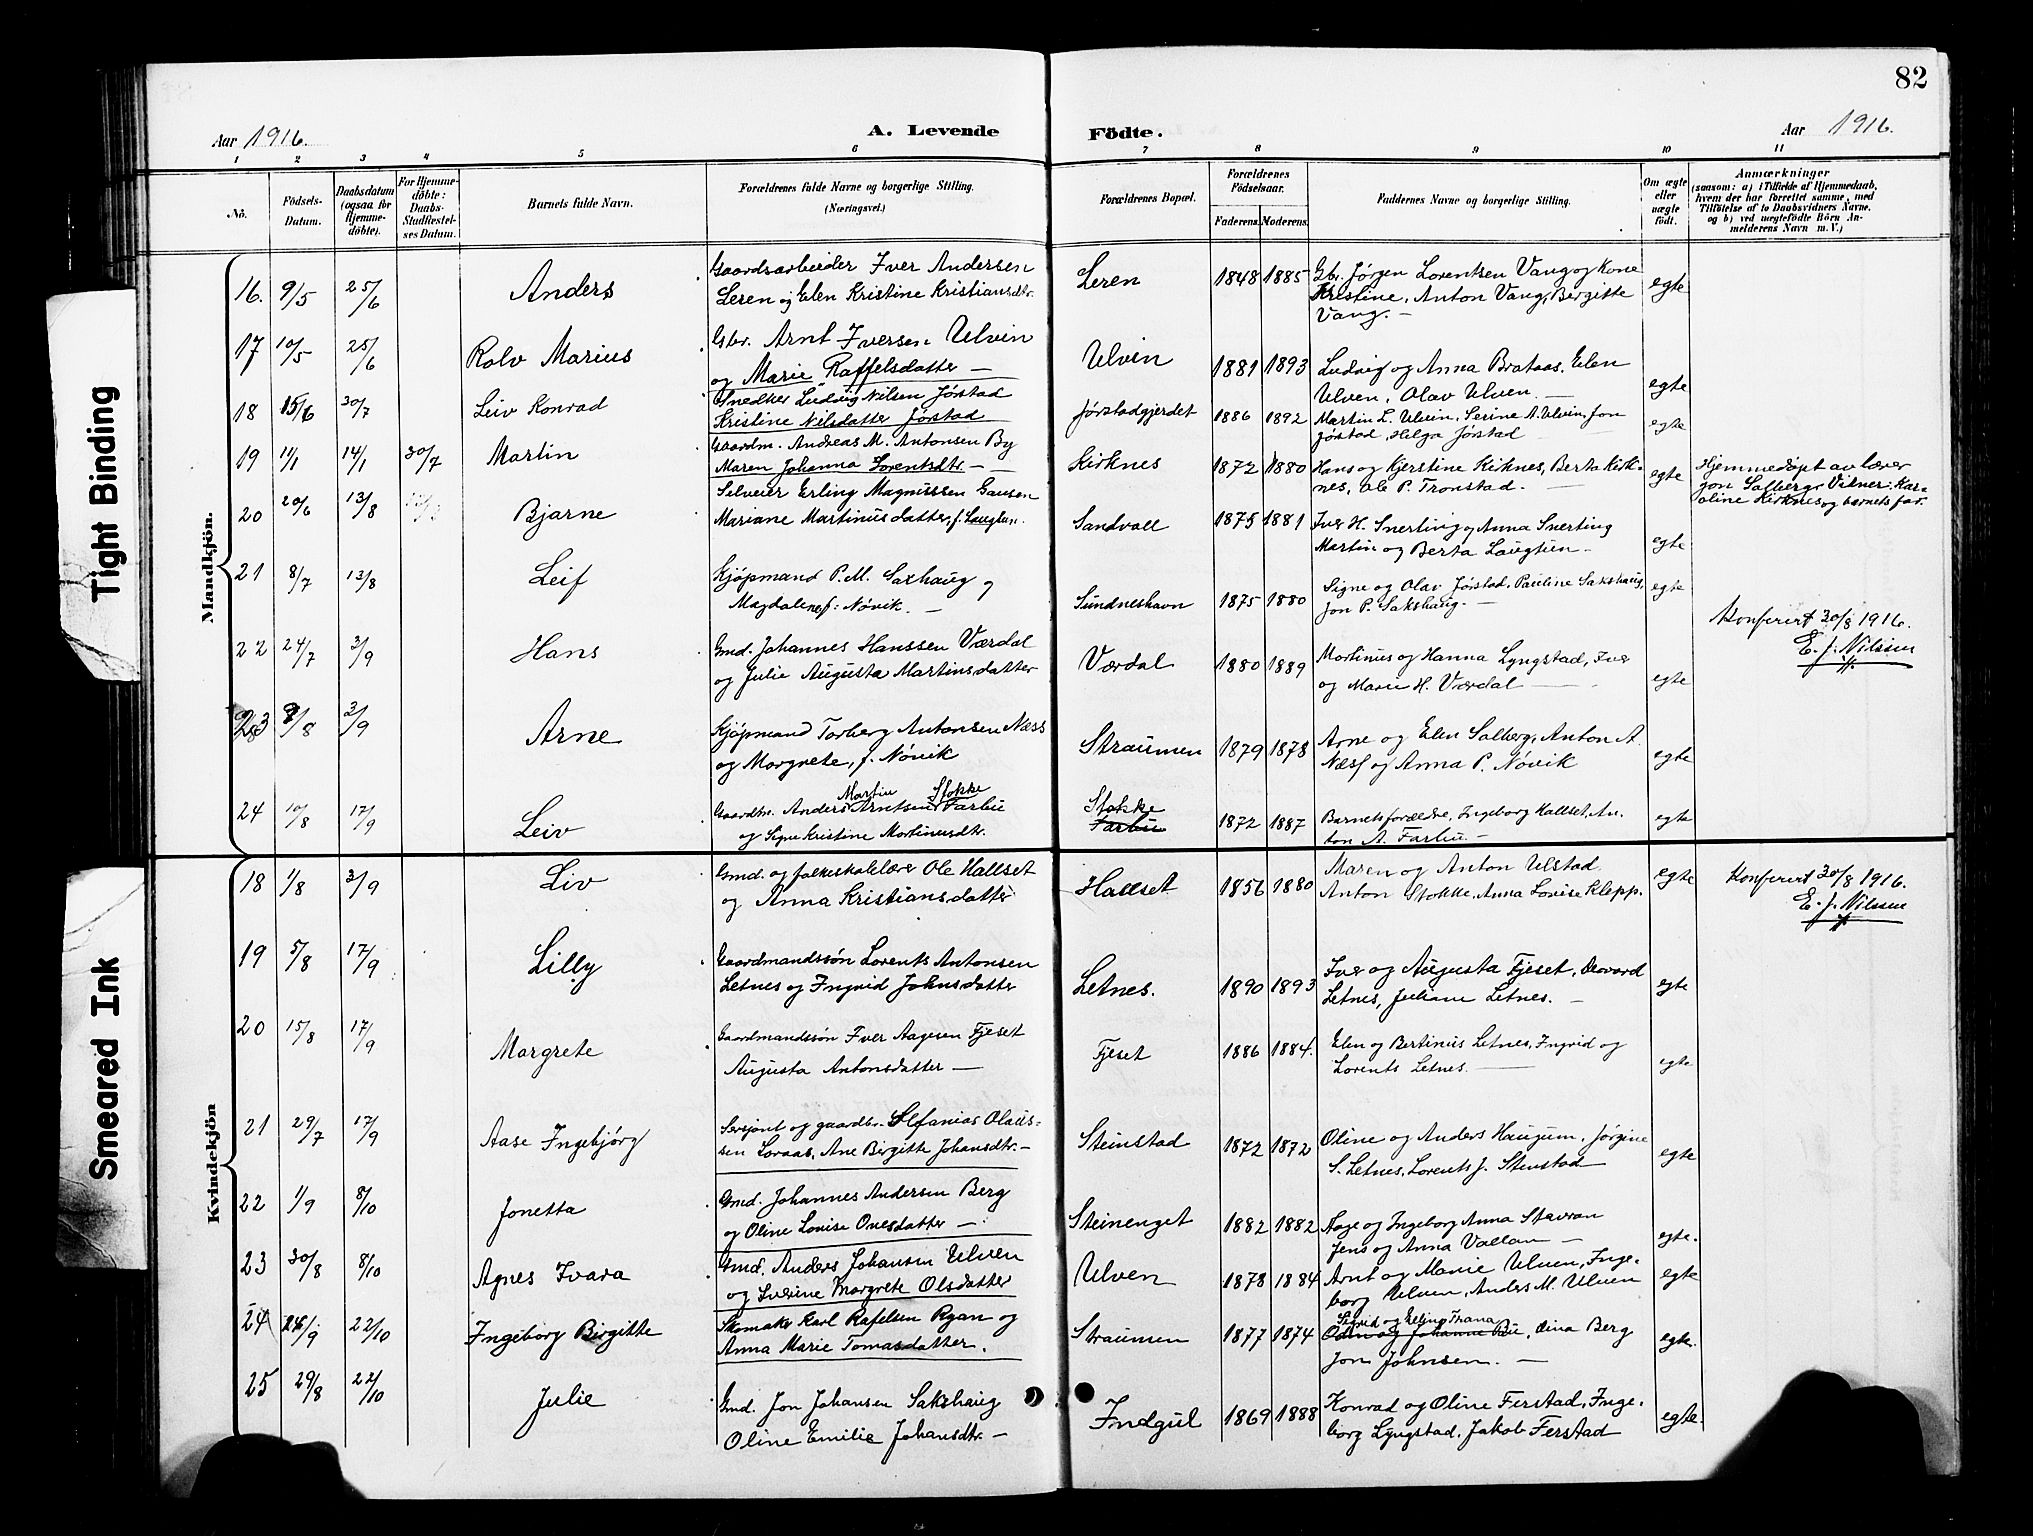 82
Aar 1916. A. Levende Födte. Aar 1916.
1 2 3 4 5 6 7 8 9 10 11
No.
Födsels-
Datum.
Daabsdatum
(ogsaa for
Hjemme-
döbte).
For Hjemme-
döbte:
Daabs-
Stadfæstel-
ses Datum.
Barnets fulde Navn.
Forældrenes fulde Navne og borgerlige Stilling.
(Næringsvei.)
Forældrenes Bopæl.
Forældrenes
Födselsaar.
Faderens. Moderens.
Faddernes Navne og borgerlige Stilling.
Om ægte
eller
uægte
födt.
Anmærkninger
(saasom: a) i Tilfælde af Hjemmedaab,
hvem der har forrettet samme, med
Tilföielse af to Daabsvidners Navne,
og b) ved uægtefödte Börn An-
melderens Navn m. V.)
Mandkjön.
16. 9/5 25/6 Anders
Gaardsarbeider Iver Andersen
Leren og Elen Kristine Kristiansdtr.
Leren 1848 1885
Gbr. Jørgen Lorentsen Vang og Kone
Kristine, Anton Vang, Bergitte
Vang. —
egte
17 10/5 25/6 Rolv Marius
Gbr. Arnt Iversen Ulvin
og Marie Raffelsdatter —
Ulvin 1881 1893
Ludvig og Anna Brataas, Elen
Ulven, Olav Ulven. —
egte
18 15/6 30/7 Leiv Konrad
Snedker Ludvig Nilsen Jørstad
Kristine Nilsdatter Jørstad
Jørstadgjerdet 1886 1892
Martin L. Ulvin, Serine A. Ulvin, Jon
Jørstad, Helga Jørstad
egte
19 11/1 14/1 30/7 Martin
Gaardm. Andreas M. Antonsen By
Maren Johanna Lorentsdtr. —
Kirknes 1872 1880
Hans og Kjerstine Kirknes, Berta Kirk-
nes, Ole P. Tronstad. —
egte
Hjemmedøpt av lærer
Jon Salberg. Vitner: Kar-
oline Kirknes og barnets far.
20 20/6 13/8 Bjarne
Selveier Erling Magnussen Gausen
Mariane Martinusdatter, f. Laugtun.
Sandvoll 1875 1881
Iver H. Snerting og Anna Snerting
Martin og Berta Laugtun —
egte
21 8/7 13/8 Leif
Kjøpmand P. M. Saxhaug og
Magdalene f: Nøvik. —
Sundneshavn 1875 1880
Signe og Olav Jørstad, Pauline Sakshaug,
Jon P. Sakshaug. —
egte
Konferert 30/8 1916.
E. J. Nilssen
22 24/7 3/9 Hans
Gmd. Johannes Hanssen Værdal
og Julie Augusta Martinsdatter
Værdal 1880 1889
Martinus og Hanna Lyngstad, Iver
og Marie H. Værdal —
egte
23 8/8 3/9 Arne
Kjøpmand Torberg Antonsen Næss
og Margrete, f. Nøvik
Straumen 1879 1878
Arne og Elen Salberg, Anton A.
Næss og Anna P. Nøvik
egte
24 10/8 17/9 Leiv
Martin Stokke
Gaardm. Anders Arntsen Farbu
og Signe Kristine Mortinusdtr.
Stokke
Farbu
1872 1887
Barnets forældre, Ingeborg Hallset, An-
ton A. Farbu. —
egte
Kvindekjön
18 1/8 3/9 Liv
Gmd. og folkeskolelærer Ole Hallset
og Anna Kristiansdatter
Hallset 1856 1880
Maren og Anton Ulstad
Anton Stokke, Anna Lovise Klepp.
egte
Konferert 30/8 1916.
E. J. Nilssen
19 5/8 17/9 Lilly
Gaardmandssøn Lorents Antonsen
Letnes og Ingrid Johnsdatter
Letnes. 1890 1893
Iver og Augusta Fjeset, Edvard
Letnes, Juliane Letnes. —
egte
20 15/8 17/9 Margrete
Gaardmandssøn Iver Aagesen Fjeset
Augusta Antonsdatter —
Fjeset 1886 1884.
Elen og Bertinus Letnes, Ingrid og
Lorents Letnes. —
egte
21 29/7 17/9 Aase Ingebjørg
Sersjant og gaardbr. Stefanias Olaus-
sen Loraas, Ane Birgitte Johansdtr. —
Steinstad 1872 1872
Oline og Anders Haugum, Jørgine
S. Letnes, Lorents J. Stenstad
egte
22 1/9 8/10 Jonetta
Gmd. Johannes Andersen Berg
og Oline Lovise Ovesdatter —
Steinenget 1882 1882
Aage og Ingeborg Anna Stavran
Jens og Anna Vallan —
egte.
23 30/8 8/10 Agnes Ivara
Gmd. Anders Johansen Ulven
og Sverine Margrete Olsdatter
Ulven 1878 1884
Arnt og Marie Ulven, Inge-
borg Ulven, Anders M. Ulven
egte
24 26/9 22/10 Ingeborg Birgitte
Skomaker Karl Rafelsen Rgan og
Anna Marie Tomasdatter.
Straumen 1877 1874
Sigrid og Erling Thana
Odin og Johanne Bu, Dina Berg
Jon Johnsen. —
egte.
25 29/8 22/10 Julie
Gmd. Jon Johansen Sakshaug
Oline Emilie Johansdtr. —
Indgul 1869 1888
Konrad og Oline Ferstad, Inge-
borg Lyngstad, Jakob Ferstad
egte.
Tight Binding
Smeared Ink